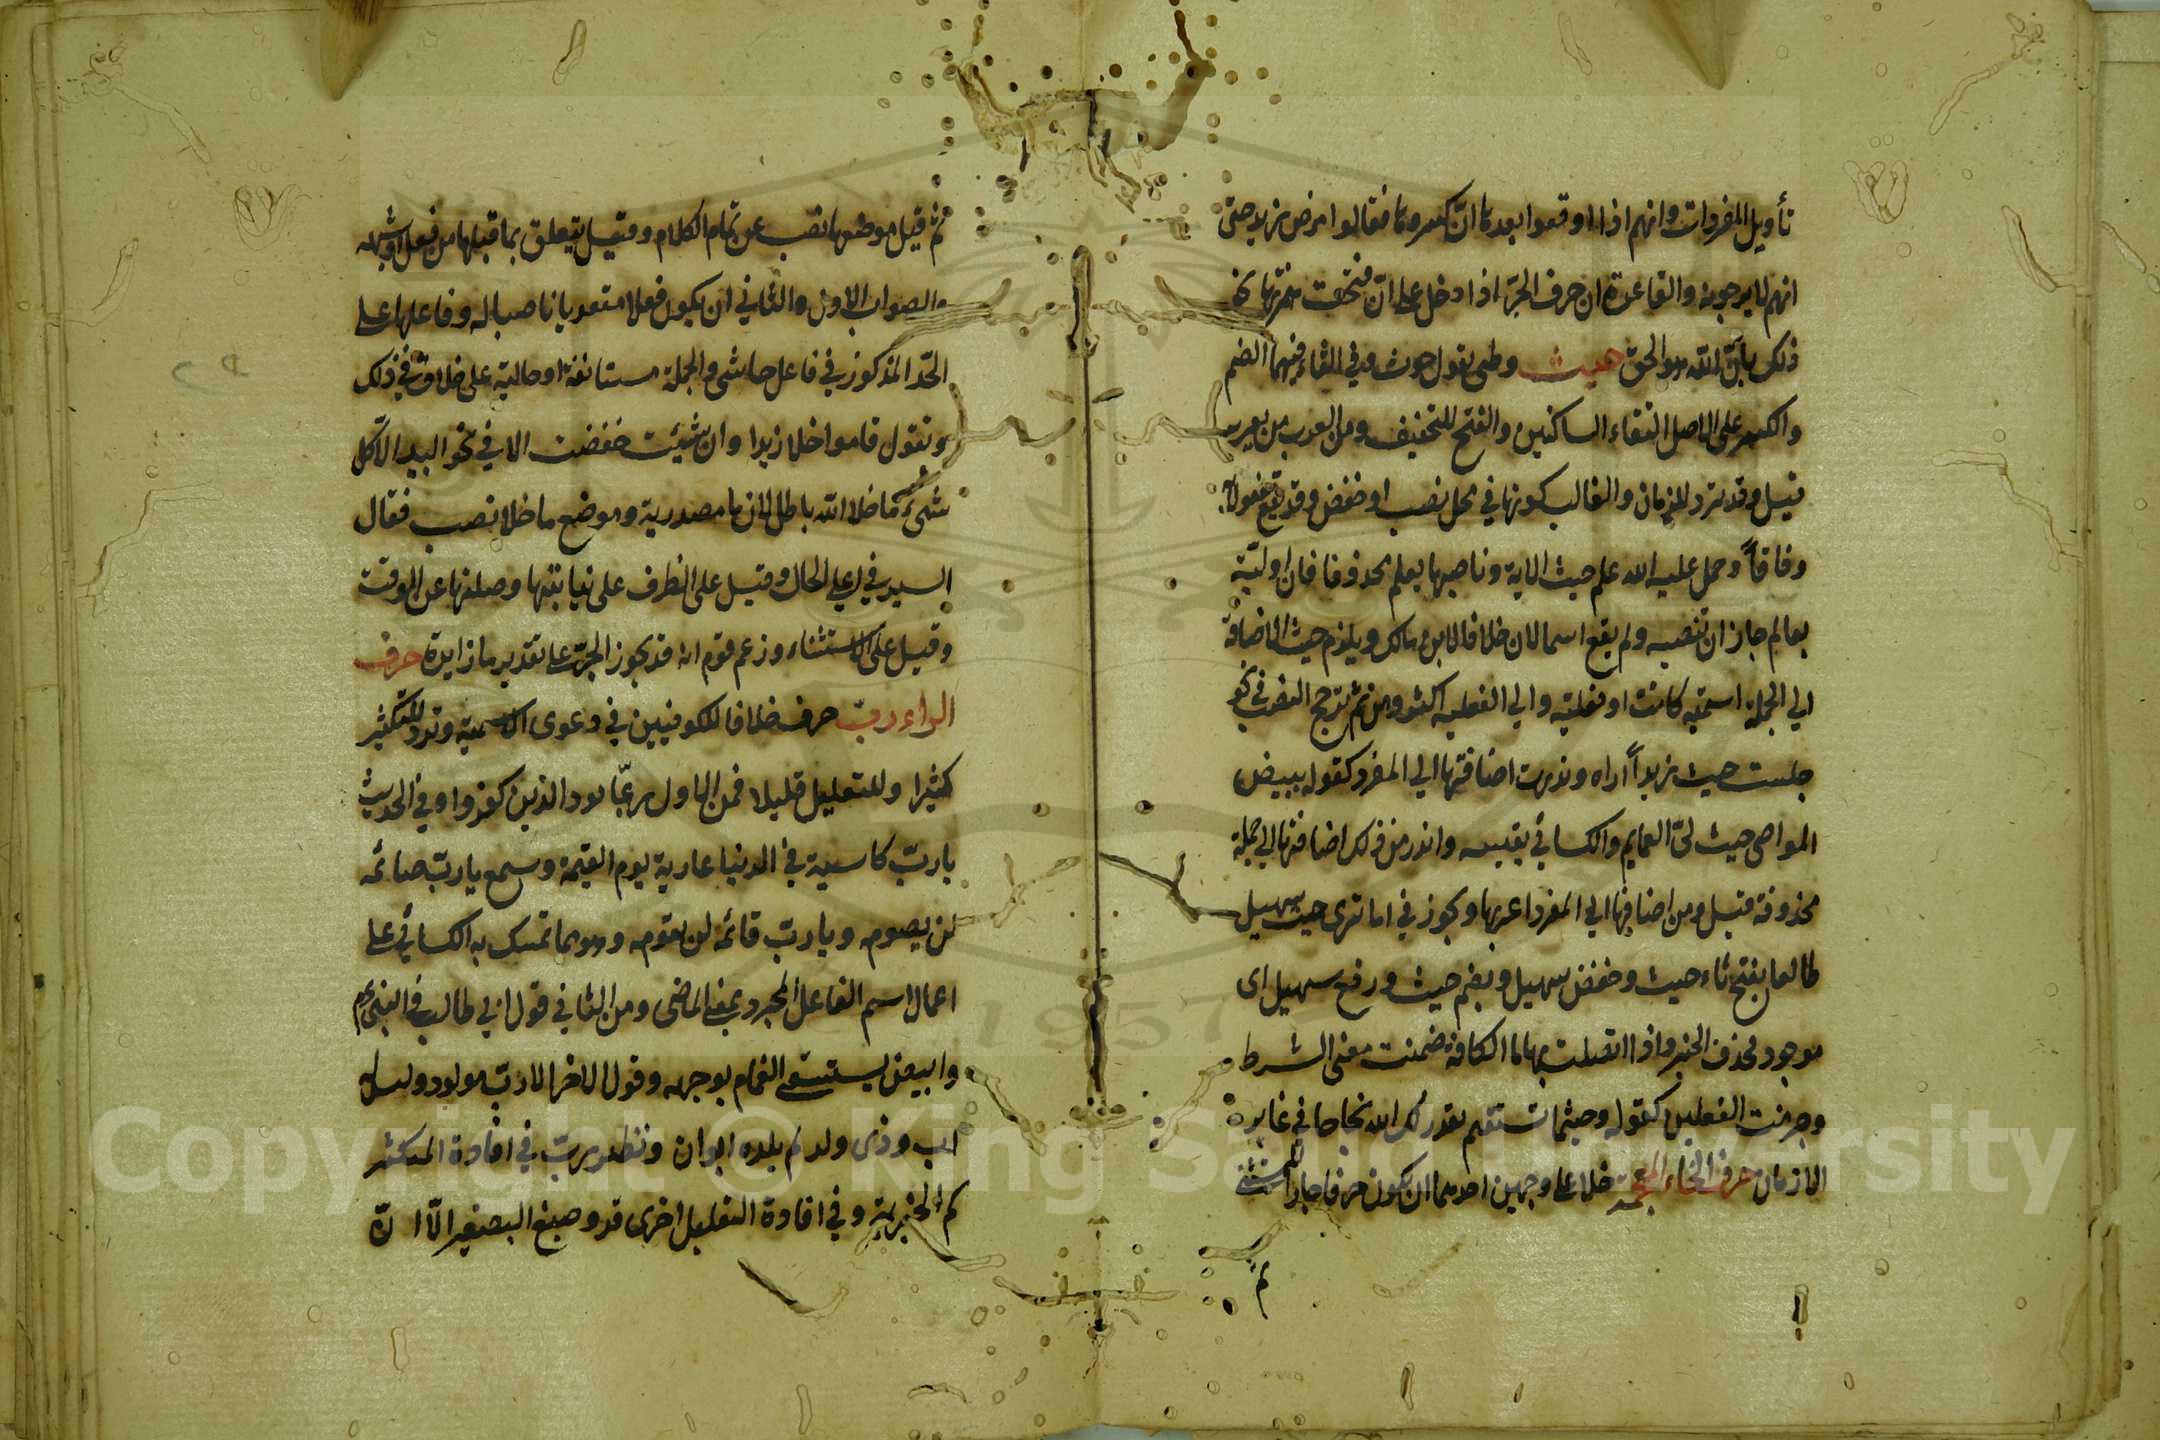 تأويل المفردات وانهم اذا اوقعوا بعدها ان كسروها فقالوا مرض زيد حتى
انهم لا يرجونه والقاعدة ان حرف الجرّ اذا دخل على انّ فتحت همزتها نحو
ذلك بانّ الله هو الحق حيث وطي يقول حوث وفي الثاء فيهما الضم
والكسر على الاصل التقاء الساكنين والفتح للتخفيف ومن العرب من يعرب
قيل وقد ترد للزمان والغالب كونها في محل نصب او خفض وقد تقع مفعولا
وفاقاً وحمل عليه الله علم حيث الاية وناصبها يعلم محذوفا فان اوليّته
بعالم جاز ان تنصبه ولم يقع اسما لان خلافا لابن مالك ويلزم حيث الاضافة
الي الجملة اسميّة كانت او فعليّة والي الفعليه اكثر ومن ثم ترجح النصب في نحو
جلست حيث زيداً اراه وندرت اضافتها الي المفرد كقوله ببيض
المواضى حيث ليّ العمايم والكسائي يقيسه واندر من ذلك اضافتها الي جملة
محذوفة قيل ومن اضافها الي المفرد اعربها ويجوز في اما ترى حيث سهيل
طالعا بفتح ثاء حيث وخفض سهيل وبضم حيث ورفع سهيل اى
موجود فحذف الخبر واذا اتصلت بها ما الكافة ضمنت معنى الشرط
وجزمت الفعلين كقوله وحيثما تستقم يقدر لك الله نجاحا في غابر
الازمان حرف الخاء المعجمة خلا على وجهين احدهما ان يكون حرفا جارا للمستثنى
ثم
ثم قيل موضعها نصب عن تمام الكلام وقيل يتعلق بما قبلها من فعل او شبهه
والصواب الاول والثاني ان يكون فعلا متعديا ناصبا له وفاعلها على
الحدّ المذكور في فاعل حاشى والجملة مستانفة او حالية على خلاف في ذلك
وتقول قاموا خلا زيدا وان شيئت خفضت الا في نحو البيد الا كل
شيء ما خلا الله باطل لان ما مصدرية وموضع ما خلا نصب فقال
السيرفي على الحال وقيل على الظرف على نيابتها وصلتها عن الوقت
وقيل على الاستثناء وزعم قوم انه قد يجوز الجرّ على تقدير ما زايدة حرف
الراء ربّ حرف خلافا للكوفيين في دعوى اسميته وترد للتكثير
كثيرا وللتعليل قليلا فمن الاول ربّما يود الذين كفروا وفي الحديث
يا ربّ كاسية في الدنيا عارية يوم القيمة وسمع يا ربّ صائمه
لن يصومه ويا ربّ قائمه لن يقومه وهو مما تمسك به الكسائي على
اعمال اسم الفاعل المجرد بمعنى الماضى ومن الثاني قول ابي طالب في النبي
وابيض يستسقى الغمام بوجهه وقول الاخر الا ربّ مولود وليس له
اب وذى ولد لم يلده ابوان ونظير ربّ في افادة التكثير
كم الخبرية وفي افادة التقليل اخرى قد وصيغ التصغير الّا انّ